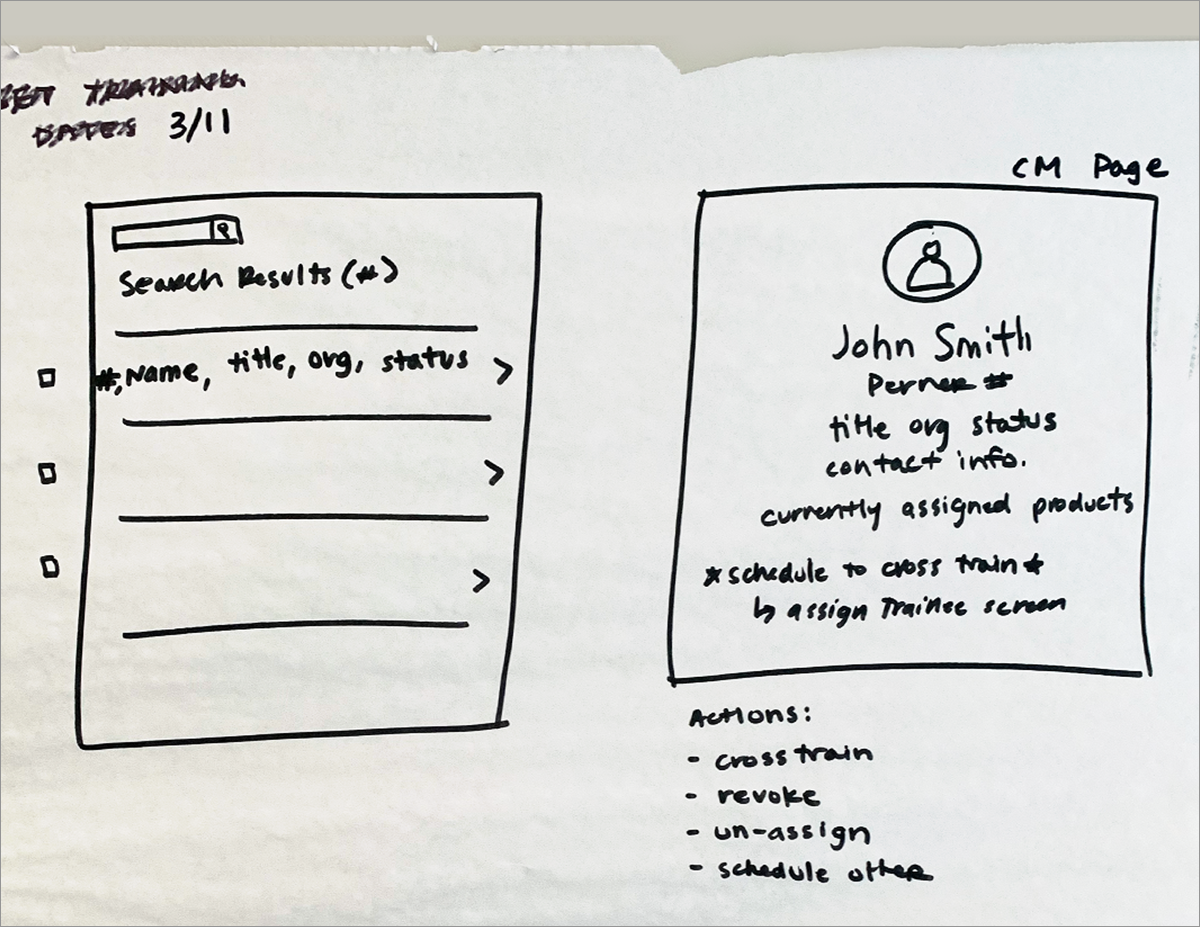 TRAINING
DATES 3/11
Search Results (#)
#, Name, title, org, status
CM Page
John Smith
Perner #
title org status
contact info.
currently assigned products
*schedule to cross train*
↳ assign Trainee screen
Actions:
- cross train
- revoke
- un-assign
- schedule other